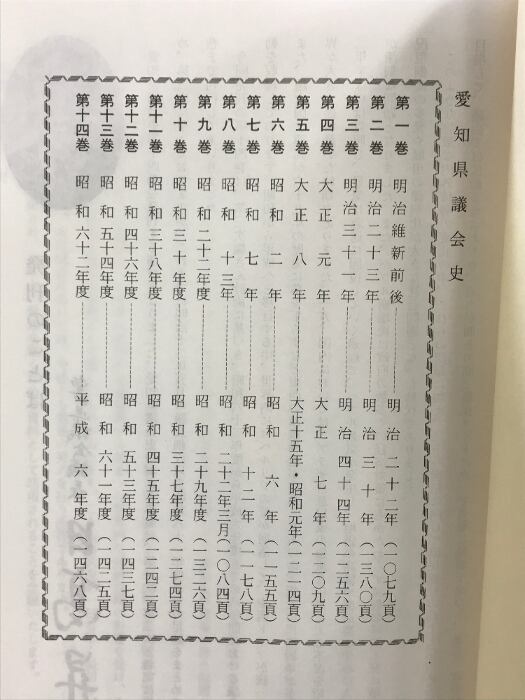 愛知県議会史
第一巻 明治維新前後………明治二十二年(一〇七九頁)
第二巻 明治二十三年………明治三十年(一三八〇頁)
第三巻 明治三十一年………明治四十四年(一二五六頁)
第四巻 大正元年………大正七年(一二〇九頁)
第五巻 大正八年………大正十五年・昭和元年(一二一四頁)
第六巻 昭和二年………昭和六年(一一五五頁)
第七巻 昭和七年………昭和十二年(一一七八頁)
第八巻 昭和十三年………昭和二十二年三月(一〇八四頁)
第九巻 昭和二十二年度………昭和二十九年度(一三二六頁)
第十巻 昭和三十年度………昭和三十七年度(一二七四頁)
第十一巻 昭和三十八年度………昭和四十五年度(一二四二頁)
第十二巻 昭和四十六年度………昭和五十三年度(一四三七頁)
第十三巻 昭和五十四年度………昭和六十一年度(一四二五頁)
第十四巻 昭和六十二年度………平成六年度(一四六八頁)